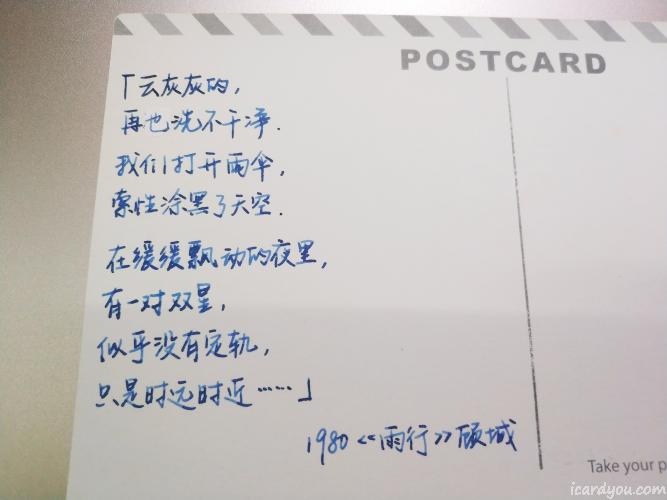 POSTCARD
「云灰灰的，
再也洗不干净.
我们打开雨伞，
索性涂黑了天空.
在缓缓飘动的夜里，
有一对双星，
似乎没有定轨，
只是时远时近……」
1980《雨行》顾城
Take your p
icardyou.com